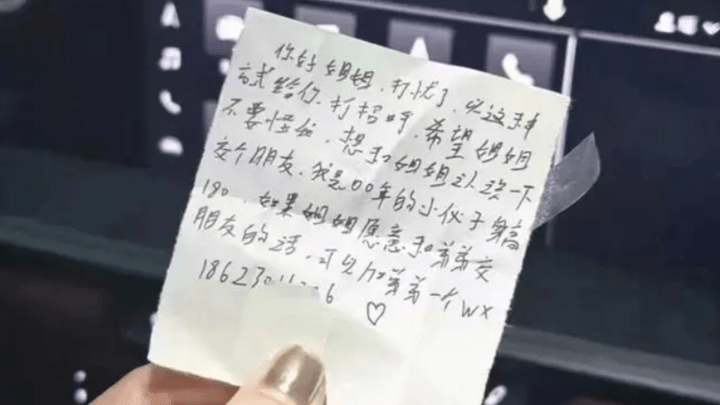 你好姐姐、打忧了、以这种
方式给你打招呼、希望姐姐
不要怪我、想和姐姐认识一下
交个朋友、我是00年的小伙子身高
180、如果姐姐愿意和弟弟交
朋友的话、可以加弟弟一个WX
♡